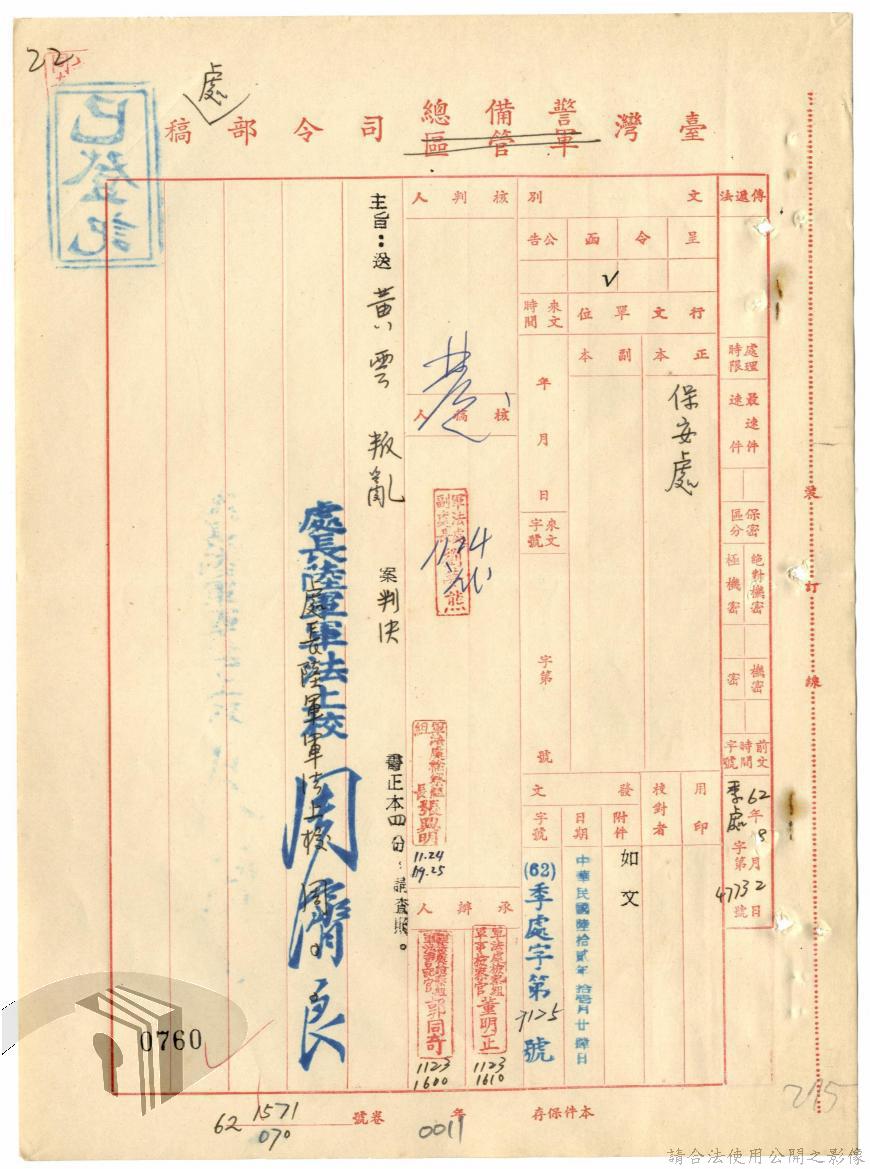 22
已登記
臺灣警備總司令部處稿
軍管區
傳遞法
處理時限
最速件
速件
保密區分
絕對機密
極機密
機密
密
前文時間字號
62年8月 日
季處字第4773 2號
文別
呈
令
函
公告
V
行文單位
來文時間
正本
副本
保安處
年 月 日
來文字號
字第 號
用印
校對者
發文
附件
如文
日期
中華民國陸拾貳年拾壹月廿肆日
字號
(62)季處字第7125號
核判人
核稿人
11.24
張興明
11.24
09.25
承辦人
軍法處檢察組
軍事檢察官 董明正
1123
1610
郭同奇
1123
1600
主旨:送黃雲叛亂案判決書正本四份,請查照。
處長陸軍軍法上校周濟良
處長陸軍軍法上校 周
0760
裝
訂
線
本件保存 年
0011
卷號
62 1571/070
215
請合法使用公開之影像